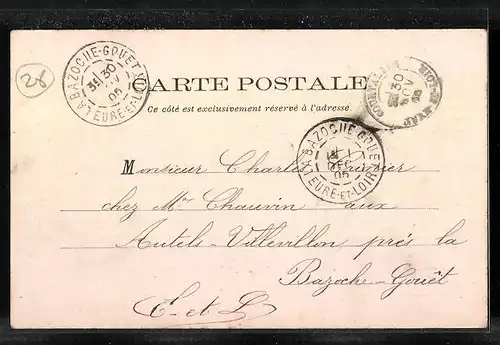 28
LA BAZOCHE-GOUET
30
NOV
05
EURE-ET-LOIR
CARTE POSTALE
Ce côté est exclusivement réservé à l'adresse.
30
NOV
05
LA BAZOCHE-GOUET
DEC
05
EURE-ET-LOIR
Monsieur Charles
chez Mr Chauvin aux
Autels-Villevillon près la
Bazoche-Gouët
E-et L